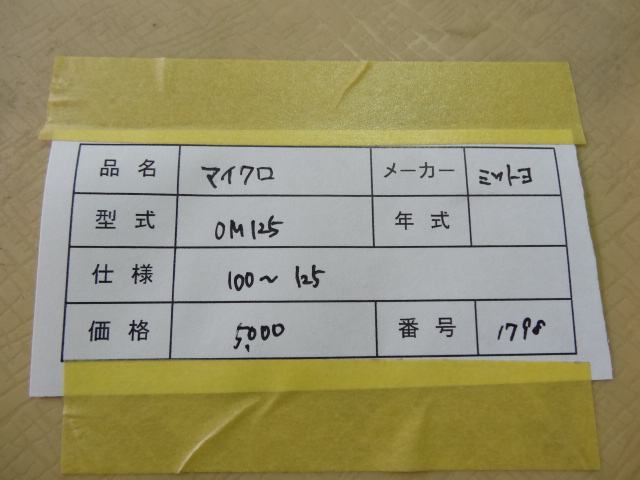 品名 マイクロ メーカー ミツトヨ
型式 OM125 年式
仕様 100～125
価格 5,000 番号 1798